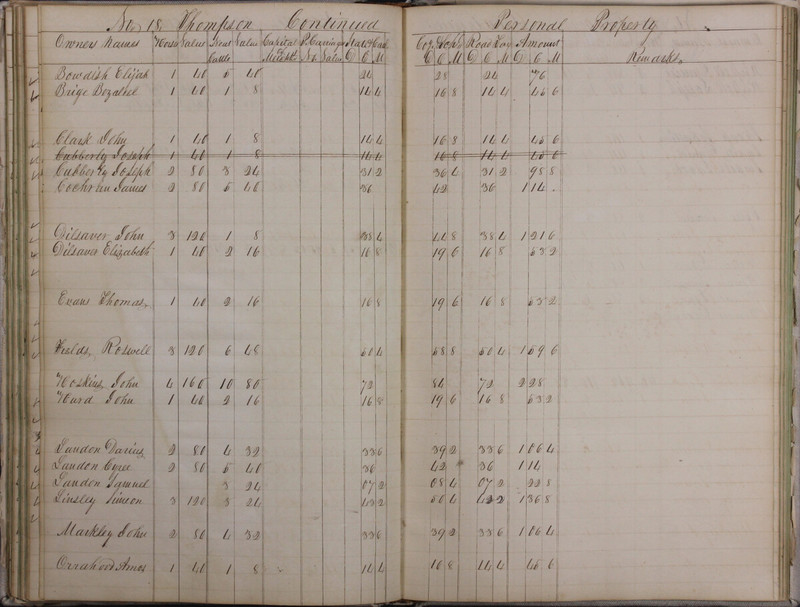 No. 18 Thompson Continued Personal Property
Owners Names Horses Value Neat Cattle Value Capital Mercht P. Carriages No Value State & Can C C M Co & School C C M Road Tax C C M Amount D C M Remarks
Bowdish Elijah 1 40 5 40 24 28 24 76
Brige Bezaleel 1 40 1 8 14 4 16 8 14 4 45 6
Clark John 1 40 1 8 14 4 16 8 14 4 45 6
Cubberly Joseph 1 40 1 8 14 4 16 8 14 4 45 6
Cubberly Joseph 2 80 3 24 31 2 36 4 31 2 98 8
Cochran James 2 80 5 40 36 42 36 1 14
Dilsaver John 3 120 1 8 38 4 44 8 38 4 1 21 6
Dilsava Elizabeth 1 40 2 16 16 8 19 6 16 8 53 2
Evans Thomas 1 40 2 16 16 8 19 6 16 8 53 2
Fields, Roswell 3 120 6 48 50 4 58 8 50 4 1 59 6
Hoskins, John 4 160 10 80 72 84 72 2 28
Hurd John 1 40 2 16 16 8 19 6 16 8 53 2
Landon Darius 2 80 4 32 33 6 39 2 33 6 1 06 4
Landon Cyree 2 80 5 40 36 42 36 1 14
Landon Samuel 3 24 07 2 08 4 07 2 22 8
Linsley Simeon 3 120 3 24 43 2 50 4 43 2 1 36 8
Marksley John 2 80 4 32 33 6 39 2 33 6 1 06 4
Orrahood Amos 1 40 1 8 14 4 16 8 14 4 45 6